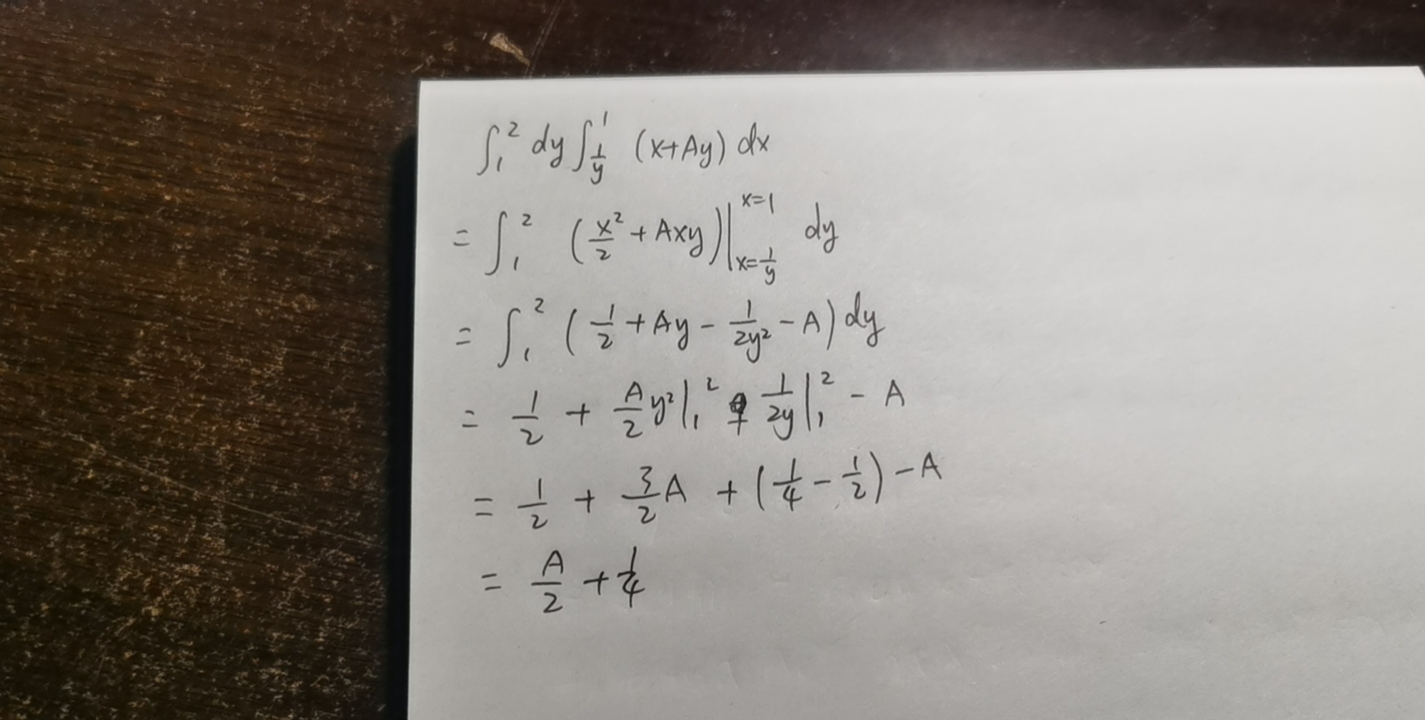 ∫₁² dy ∫_{1/y}^{1} (x+Ay) dx
= ∫₁² (x²/2 + Axy)|_{x=1/y}^{x=1} dy
= ∫₁² (1/2 + Ay - 1/(2y²) - A) dy
= 1/2 + A/2 y²|₁² + 1/(2y)|₁² - A
= 1/2 + 3/2 A + (1/4 - 1/2) - A
= A/2 + 1/4